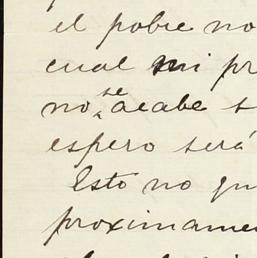 el pobre no
cual mi pr
no se acabe s
espero será
Esto no qu
proximamen